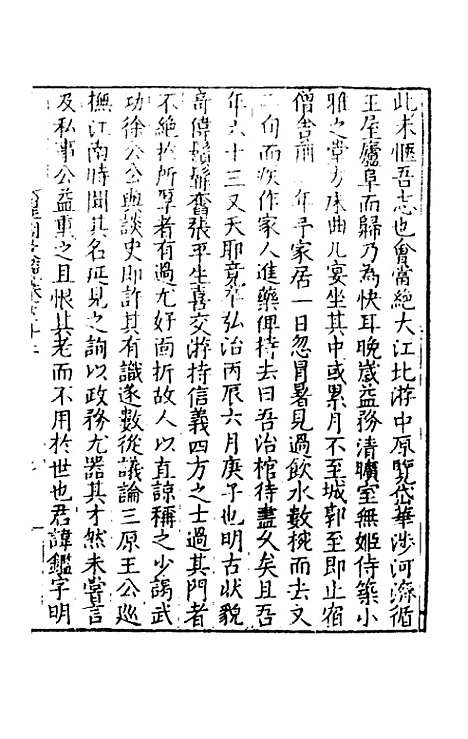 此未愜吾志也會當絶大江北游中原覽岱華涉河濟循
王屋廬阜而歸乃為快耳晚嵗益務清曠室無姬侍築小
雅之堂方牀曲几宴坐其中或累月不至城郭至即止宿
僧舎前年予家居一日忽冒暑見過飲水數椀而去又
二旬而疾作家人進藥俾持去曰吾治棺待盡久矣且吾
年六十三又夭耶竟卒弘治丙辰六月庚子也明古狀貌
竒偉鬚髯奮張平生喜交游持信義四方之士過其門者
不絶於所厚者有過尤好面折故人以直諒稱之少謁武
功徐公公與談史即許其有識遂數從議論三原王公巡
撫江南時聞其名延見之詢以政務尤器其才然未嘗言
及私事公益重之且恨其老而不用於世也君諱鑑字明